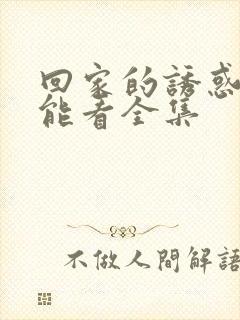 回家的誘惑
能看全集
不做人間解語